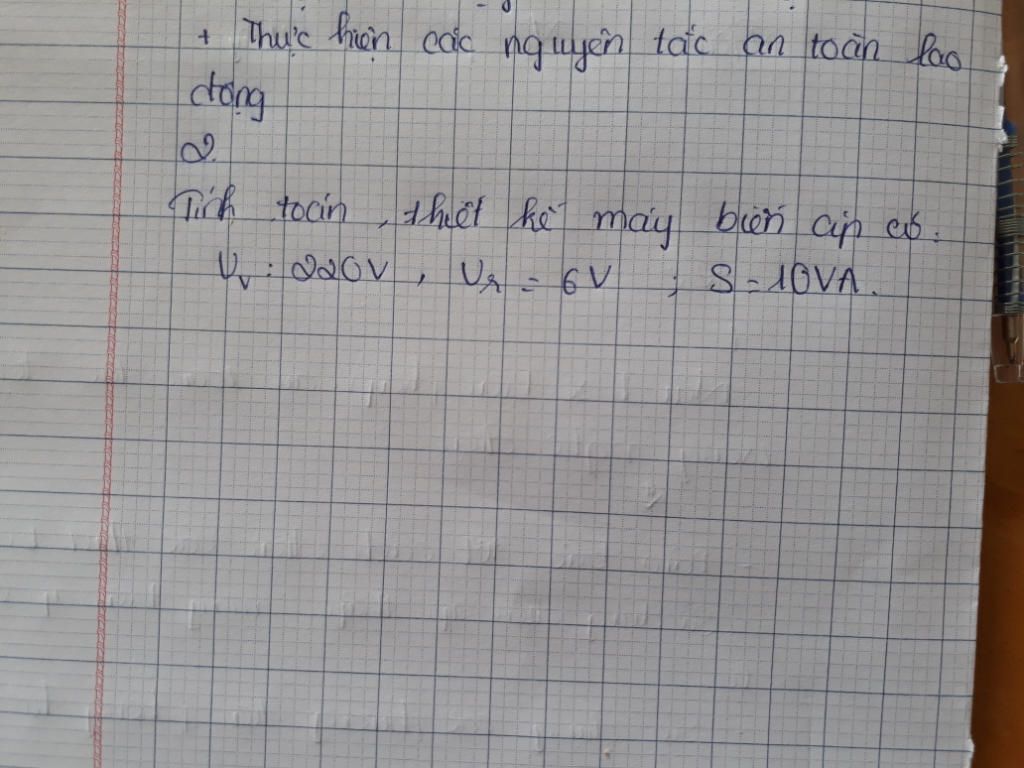 + Thực hiện các nguyên tắc an toàn lao
động
2.
Tính toán, thiết kế máy biến áp có:
Uv: 220V, Ur = 6V ; S = 10VA.